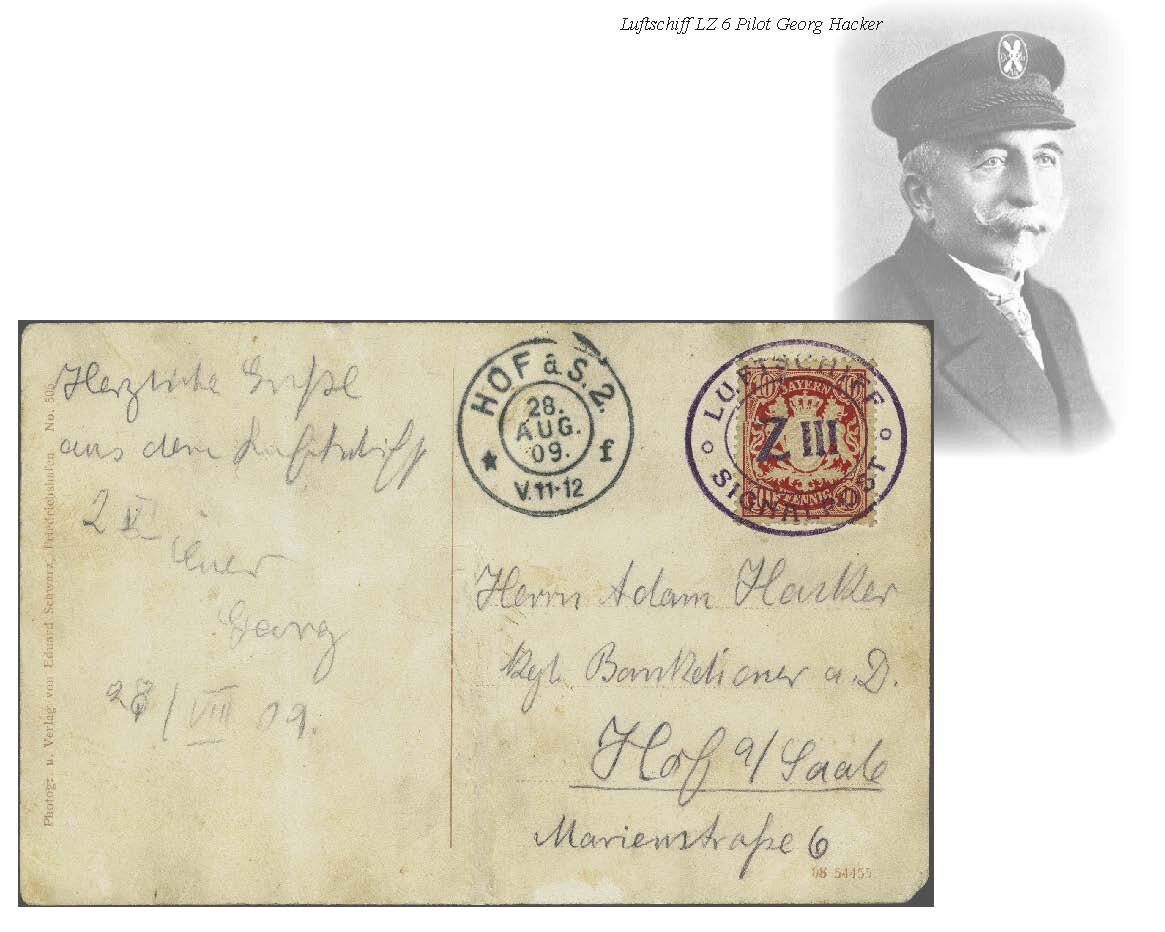 Luftschiff LZ 6 Pilot Georg Hacker
Photogr. u. Verlag von Eduard Schwarz, Friedrichshafen. No. 505
Herzliche Grüße
aus dem Luftschiff
Z
euer
Georg
/VIII 09.
HOF a S. 2.
28.
AUG.
09.
f
V.11-12
LUFTSCHIFF
Z III
SIGNALPOST
10
BAYERN
PFENNIG
Herrn Adam Hacker
kgl. a. D.
Hof a/Saale
Marienstraße 6
08 54455